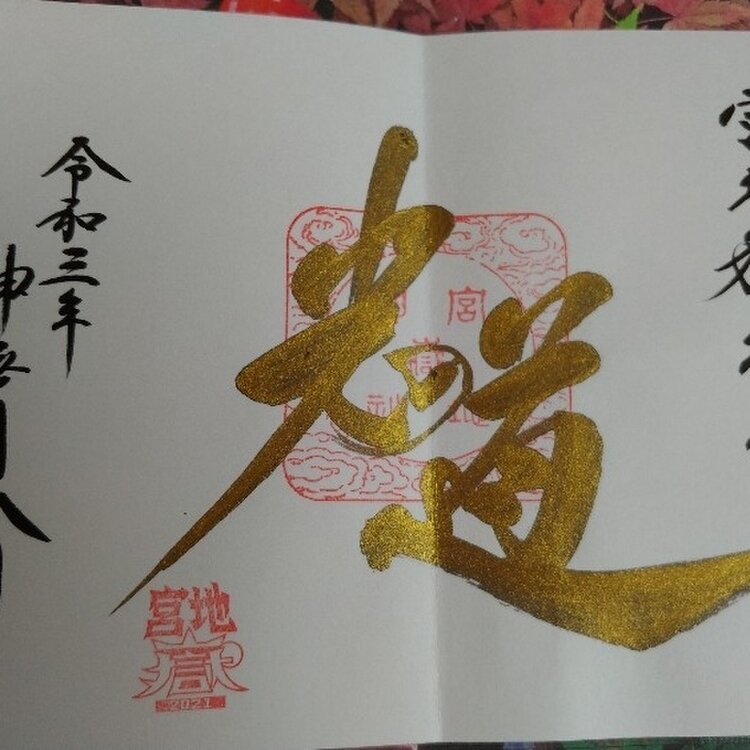 光の道
宮地
嶽
神社
令和三年
神無月
宮地
嶽
2021